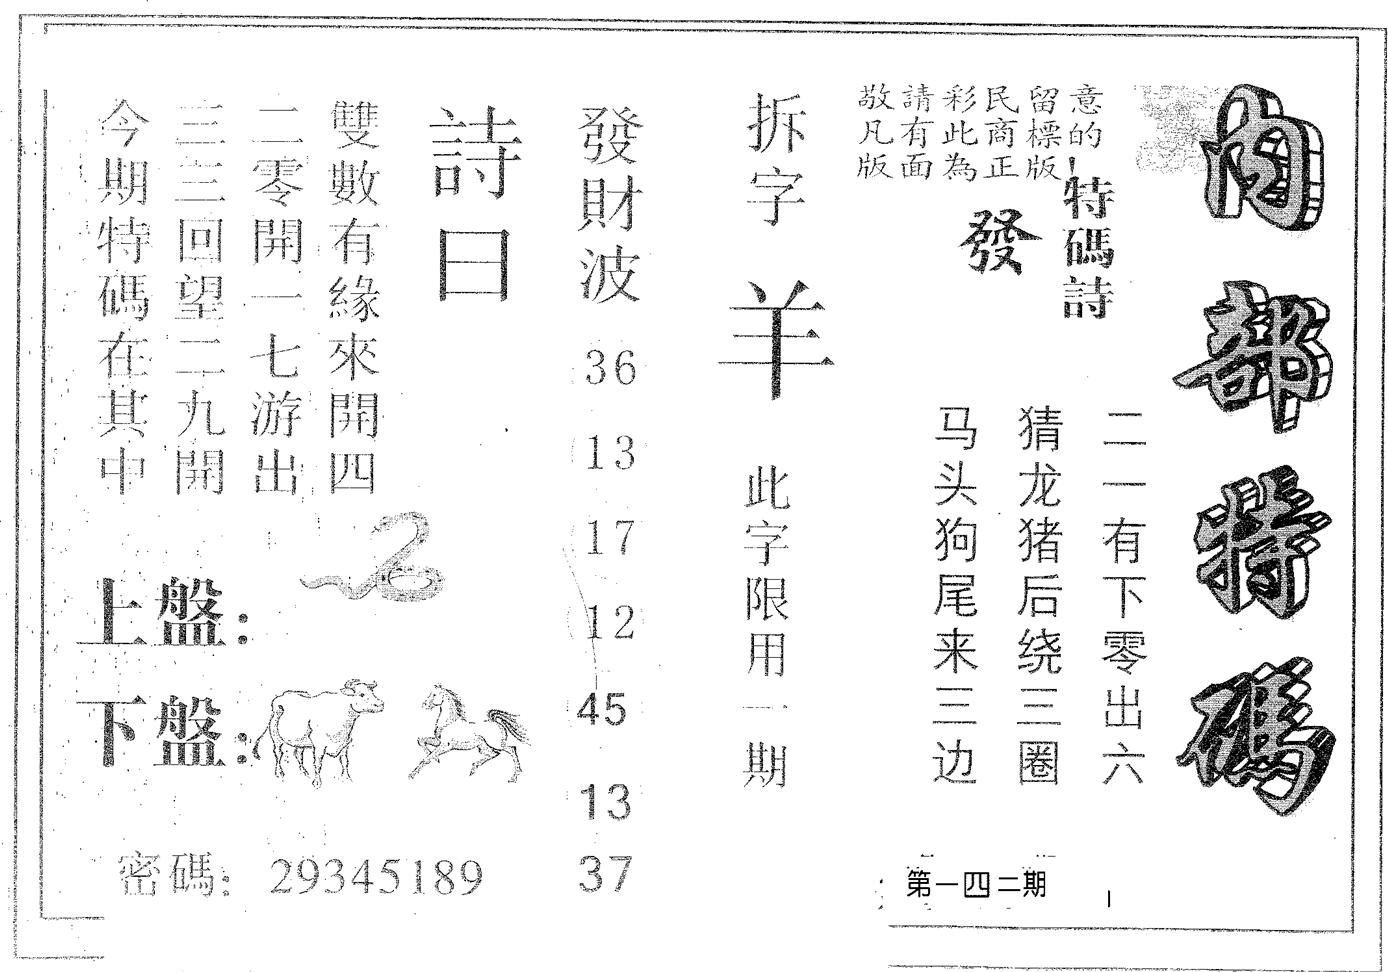 內部特碼
意的
留標版
民商正
彩此為
請有面
敬凡版
特碼詩
發
二一有下零出六
猜龙猪后绕三圈
马头狗尾来三边
第一四二期
拆字
羊
此字限用一期
發財波
36
13
17
12
45
13
37
詩曰
雙數有緣來開四
二零開一七游出
三三回望二九開
今期特碼在其中
上盤:
下盤:
密碼: 29345189